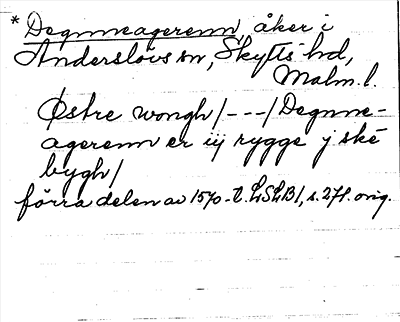 * Degnneagerenn åker i
Anderslövs sn, Skytts hd,
Malm. l.
Østre wongh / --- / Degnne-
agerenn er iij rygge j ske
bygh /
förra delen av 1570-t. LSLB 1, s. 271. orig.